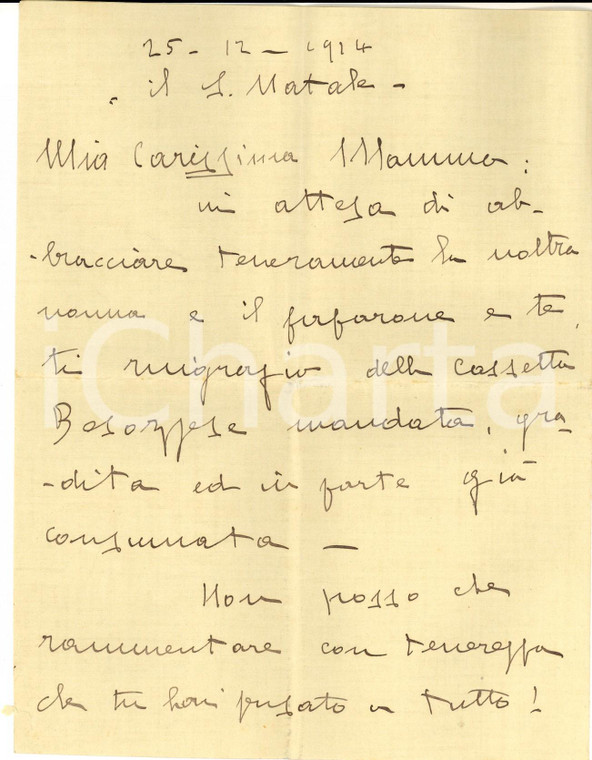 25 - 12 - 1914
il S. Natale -
Mia Carissima Mamma:
in attesa di ab-
-bracciare teneramente la nostra
nonna e il firfarone e te,
ti ringrazio della cassetta
Besozzese mandata, gra-
-dita ed in parte già
consumata -
Non posso che
rammentare con tenerezza
che tu hai pensato a tutto!
iCharta